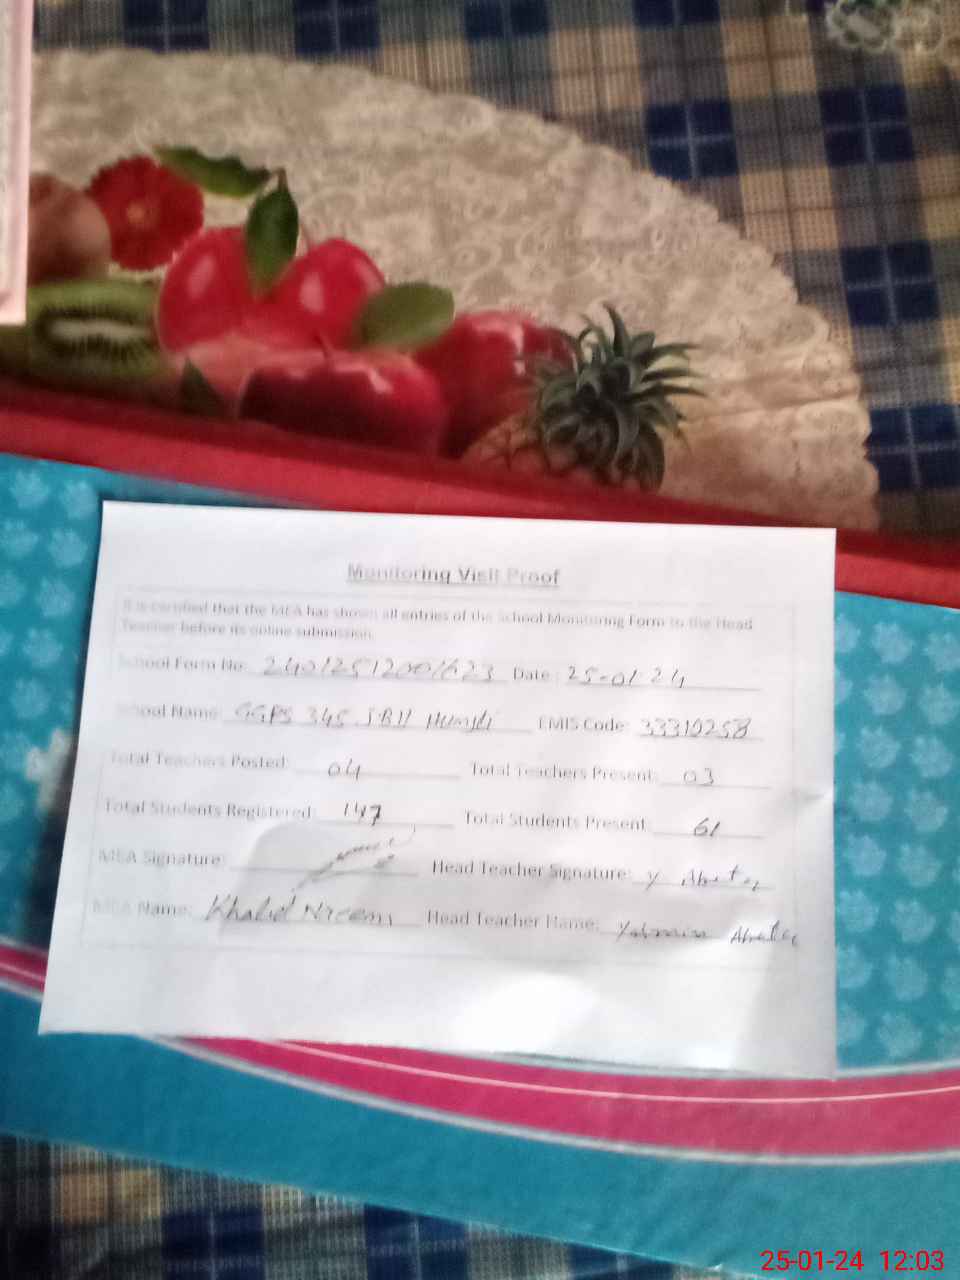 Monitoring Visit Proof
It is certified that the MEA has shown all entries of the School Monitoring Form to the Head
Teacher before its online submission.
School Form No: Date: 25-01-24
School Name: GGPS 345 J.B EMIS Code: 33310258
Total Teachers Posted: 04 Total Teachers Present: 03
Total Students Registered: 147 Total Students Present: 61
MEA Signature: Head Teacher Signature: Y
MEA Name: Khalid Naeem Head Teacher Name:
25-01-24 12:03